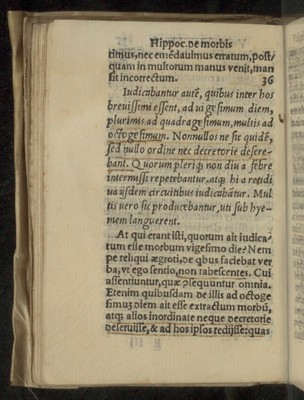 Hippoc. de morbis
timus, nec emẽdauimus erratum, post/
quam in multorum manus venit, man
sit incorrectum. 36
Iudicabantur autẽ, quibus inter hos
breuissimi essent, ad uigesimum diem,
plurimis ad quadragesimum, multis ad
octogesimum. Nonnullos ne sic quidẽ,
sed nullo ordine nec decretorie desere-
bant. Quorum pleriq; non diu a febre
intermissi repetebantur. atq; hi a recidi
ua ijsdem circuitibus iudicabãtur. Mul
tis uero sic producebantur, uti sub hye-
mem languerent.
At qui erant isti, quorum ait iudica/
tum esse morbum vigesimo die? Nem
pe reliqui ægroti, de qbus faciebat ver
ba, vt ego sentio, non tabescentes. Cui
assentiuntur, quæ ꝓsequuntur omnia.
Etenim quibusdam de illis ad octoge
simuȝ diem ait esse extractum morbũ,
atq; alios inordinate neque decretorie
deseruisse, & ad hos ipsos redijsse: quas